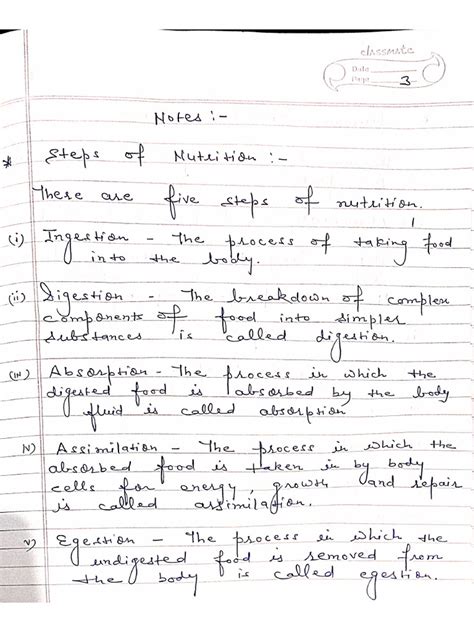 classmate
Date
Page 3
Notes :-
* Steps of Nutrition :-
There are five steps of nutrition.
(i) Ingestion - The process of taking food
into the body.
(ii) Digestion - The breakdown of complex
components of food into simpler
substances is called digestion.
(iii) Absorption - The process in which the
digested food is absorbed by the body
fluid is called absorption
iv) Assimilation - The process in which the
absorbed food is taken in by body
cells for energy, growth and repair
is called assimilation.
v) Egestion - The process in which the
undigested food is removed from
the body is called egestion.